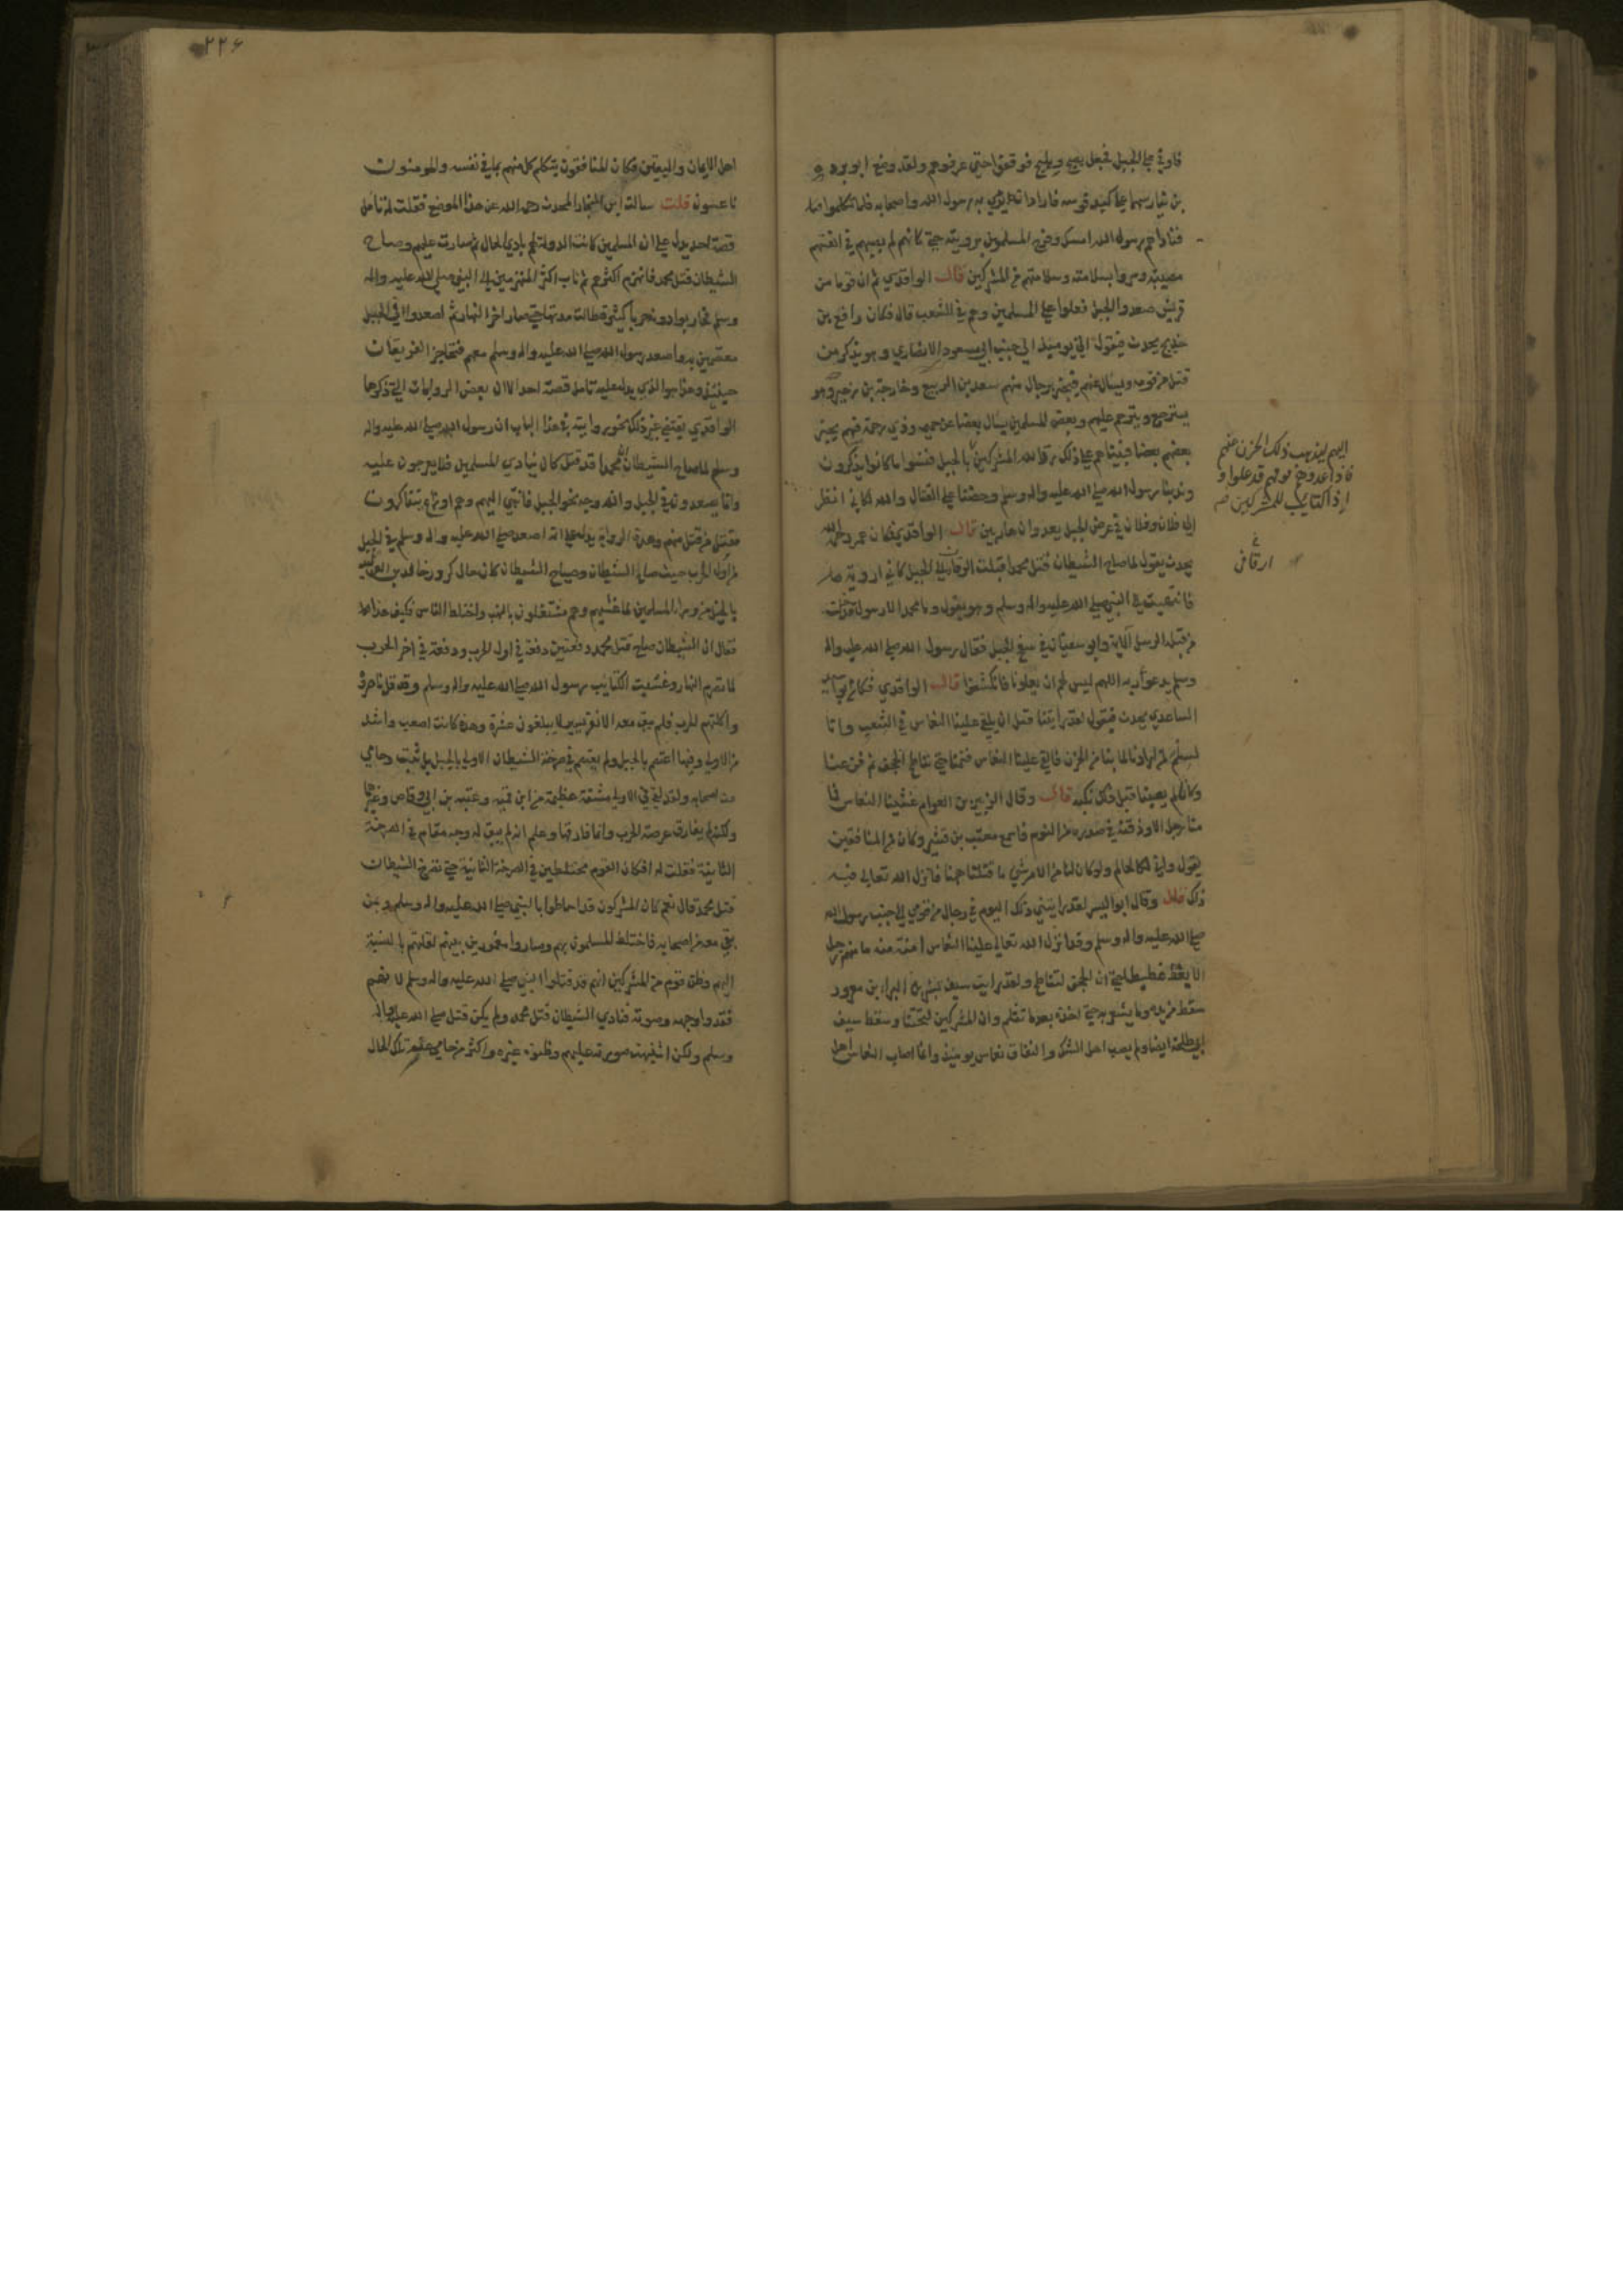 فاوفى على الجبل فجعل يصيح ويليح فوقعوا حتى عرفوهم ولقد وضع ابو بردة
بن نيار سهما على كبد قوسه فاراد ان يرمي به رسول الله واصحابه فلما تكلموا
فناداهم رسول الله امسك وفرح المسلمون برويته حتى كانهم لم يصبهم في انفسهم
مصيبة وسروا بسلامته وسلامتهم من المشركين قال الواقدي ثم ان قوما من
قريش صعدوا الجبل فعلوا على المسلمين وهم في الشعب قال فكان رافع بن
خديج يحدث فيقول اني يومئذ الى جنب ابي مسعود الانصاري وهو يذكر من
قتل من قومه ويسال عنهم فيخبر برجال منهم سعد بن الربيع وخارجة بن زهير وهو
يسترجع ويترحم عليهم وبعض المسلمين يسال بعضا عن حميم وذي رحمه فهم يخبر
بعضهم بعضا فبيناهم على ذلك رد الله المشركين بالجبل فنسوا ما كانوا يذكرون
وندبنا رسول الله صلى الله عليه واله وسلم وحضنا على القتال والله لكاني انظر
الى فلان وفلان في عرض الجبل يعدوان هاربين قال الواقدي فكان عمر رحمه الله
يحدث يقول لما صاح الشيطان قتل محمد اقبلت ارقا الى الجبل كاني اروية
فانتهيت الى النبي صلى الله عليه واله وسلم وهو يقول وما محمد الا رسول قد خلت
من قبله الرسل الاية وابو سفيان في سفح الجبل فقال رسول الله صلى الله عليه واله
وسلم يدعو ربه اللهم ليس لهم ان يعلونا فانكشفوا قال الواقدي فكان ابو اسيد
الساعدي يحدث فيقول لقد رايتنا قبل ان يلقى علينا النعاس في الشعب وانا
لسلم لمن ارادنا لما بنا من الحزن فالقي علينا النعاس فنمنا حتى تناطح الحجف ثم فزعنا
وكانا لم يصبنا قبل ذلك نكبة قال وقال الزبير بن العوام غشينا النعاس فما
منا رجل الا وذقنه في صدره من النوم فاسمع معتب بن قشير وكان من المنافقين
يقول واني لكالحالم لو كان لنا من الامر شي ما قتلنا ههنا فانزل الله تعالى فيه
ذلك قال وقال ابو اليسر لقد رايتني ذلك اليوم في رجال من قومي الى جنب رسول الله
صلى الله عليه واله وسلم وقد انزل الله تعالى علينا النعاس امنة منه ما منهم رجل
الا يغط غطيطا حتى ان الحجف لتناطح ولقد رايت سيف بشر بن البراء بن معرور
سقط من يده وما يشعر به حتى اخذه بعد ما تثلم وان المشركين لتحتنا وسقط سيف
ابي طلحة ايضا ولم يصب اهل الشك والنفاق نعاس يومئذ وانما اصاب النعاس اهل
اليهم ليذهب ذلك الحزن عنهم
فاذا عدوهم فوقهم قد علوا و
اذا كتايب للمشركين صح
ارقا في
٢٢٦
اهل الايمان واليقين فكان المنافقون يتكلم كل منهم بما في نفسه والمومنون
ناعسون قلت سالت ابن النجار المحدث رحمه الله عن هذا الموضع فقلت له تامل
قصة احد يدل على ان المسلمين كانت الدولة لهم بادي الحال ثم صارت عليهم وصاح
الشيطان قتل محمد فانهزم اكثرهم ثم ثاب اكثر المنهزمين الى النبي صلى الله عليه واله
وسلم فحاربوا دونه حربا كثيرة طالت مدتها حتى صار اخر النهار ثم اصعدوا في الجبل
معتصمين به واصعد رسول الله صلى الله عليه واله وسلم معهم فتحاجز الفريقان
حينئذ وهذا هو الذي يدل عليه تامل قصة احد الا ان بعض الروايات التي ذكرها
الواقدي يقتضي غير ذلك نحو روايته في هذا الباب ان رسول الله صلى الله عليه واله
وسلم لما صاح الشيطان ان محمدا قد قتل كان ينادي المسلمين فلا يعرجون عليه
وانما يصعدون في الجبل وانه وجه نحو الجبل فانتهى اليهم وهم اوزاع يتذاكرون
بقتل من قتل منهم وهذه الرواية يدل على انه اصعد صلى الله عليه واله وسلم في الجبل
من اول الحرب حيث صاح الشيطان وصياح الشيطان كان حال كر خالد بن الوليد
بالخيل من وراء المسلمين لما غشيهم وهم مشتغلون بالنهب واختلط الناس فكيف هذا
فقال ان الشيطان صاح قتل محمد دفعتين دفعة في اول الحرب ودفعة في اخر الحرب
لما تصرم النهار وغشيت الكتايب رسول الله صلى الله عليه واله وسلم وقد قل ناصروه
واكلتهم الحرب فلم يبق معه الا نفر يسير لا يبلغون عشرة وهذه كانت اصعب واشد
من الاولى وفيها اعتصم بالجبل ولم يعتصم في صرخة الشيطان الاولى بالجبل بل ثبت وحامى
عنه اصحابه ولقد لقي في الاولى مشقة عظيمة من ابن قميه وعتبه بن ابي وقاص وغيرهما
ولكنه لم يفارق عرصة الحرب وانما فارقها وعلم انه لم يبق له وجه مقام في الصرخة
الثانية فقلت له افكان القوم مختلطين في الصرخة الثانية حتى تصرخ الشيطان
قتل محمد قال نعم كان المشركون قد احاطوا بالنبي صلى الله عليه واله وسلم وبمن
بقي معه من اصحابه فاختلط المسلمون بهم وصاروا مغمورين بينهم لقلتهم بالنسبة
اليهم وظن قوم من المشركين انهم قد قتلوا النبي صلى الله عليه واله وسلم لانهم
فقدوا وجهه وصورته فنادى الشيطان قتل محمد ولم يكن قتل صلى الله عليه واله
وسلم ولكن اشتبهت صورته عليهم وظنوه غيره واكثر من حامى عنه في تلك الحال